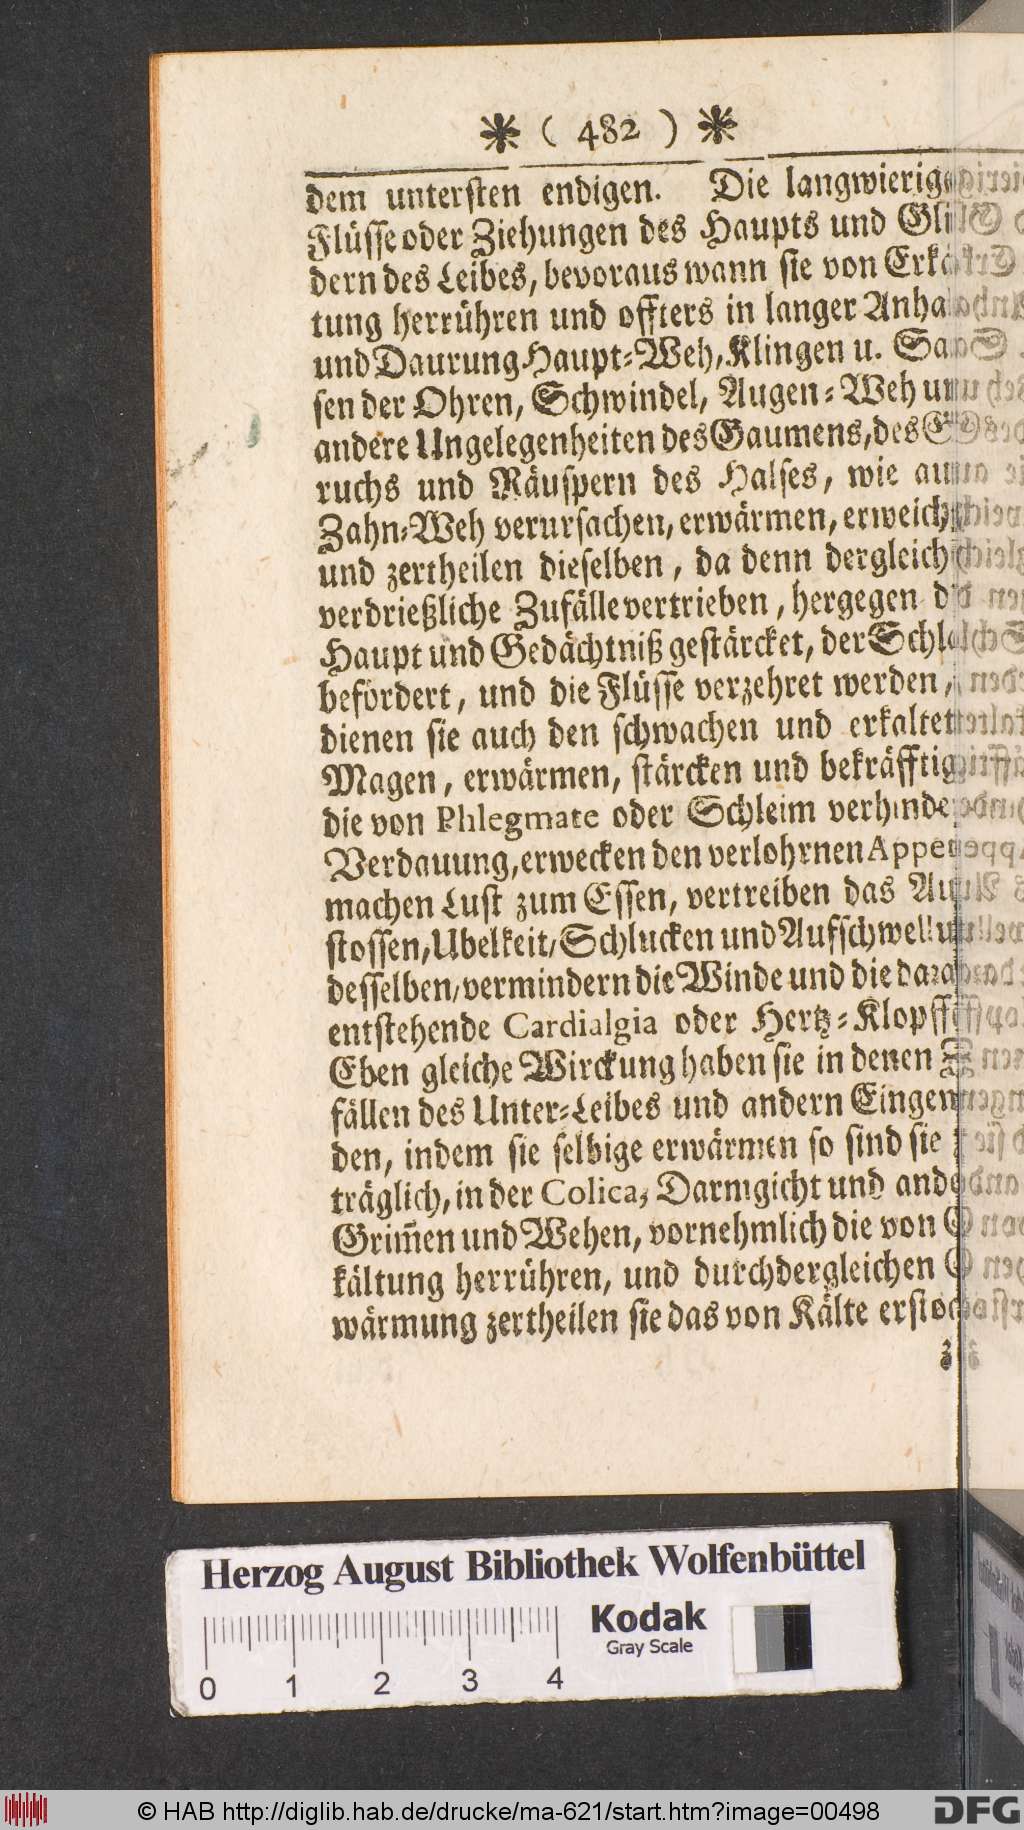 * ( 482 ) *
dem untersten endigen. Die langwierig
Flüsse oder Ziehungen des Haupts und Gli
dern des Leibes, bevoraus wann sie von Erkä
tung herrühren und offters in langer Anha
und Daurung Haupt-Weh, Klingen u. Sau
sen der Ohren, Schwindel, Augen-Weh un
andere Ungelegenheiten des Gaumens, des
ruchs und Räuspern des Halses, wie au
Zahn-Weh verursachen, erwärmen, erweich
und zertheilen dieselben, da denn dergleich
verdrießliche Zufälle vertrieben, hergegen d
Haupt und Gedächtniß gestärcket, der Schla
befördert, und die Flüsse verzehret werden,
dienen sie auch den schwachen und erkaltet
Magen, erwärmen, stärcken und bekräfftig
die von Phlegmate oder Schleim verhinde
Verdauung, erwecken den verlohrnen Appe
machen Lust zum Essen, vertreiben das Au
stossen, Ubelkeit, Schlucken und Aufschwellu
desselben, vermindern die Winde und die dara
entstehende Cardialgia oder Hertz-Klopff
Eben gleiche Wirckung haben sie in denen Z
fällen des Unter-Leibes und andern Eingew
den, indem sie selbige erwärmen so sind sie
träglich, in der Colica, Darmgicht und ande
Grim̃en und Wehen, vornehmlich die von
kältung herrühren, und durch dergleichen
wärmung zertheilen sie das von Kälte erstoc
Herzog August Bibliothek Wolfenbüttel
Kodak
Gray Scale
0 1 2 3 4
© HAB http://diglib.hab.de/drucke/ma-621/start.htm?image=00498
DFG